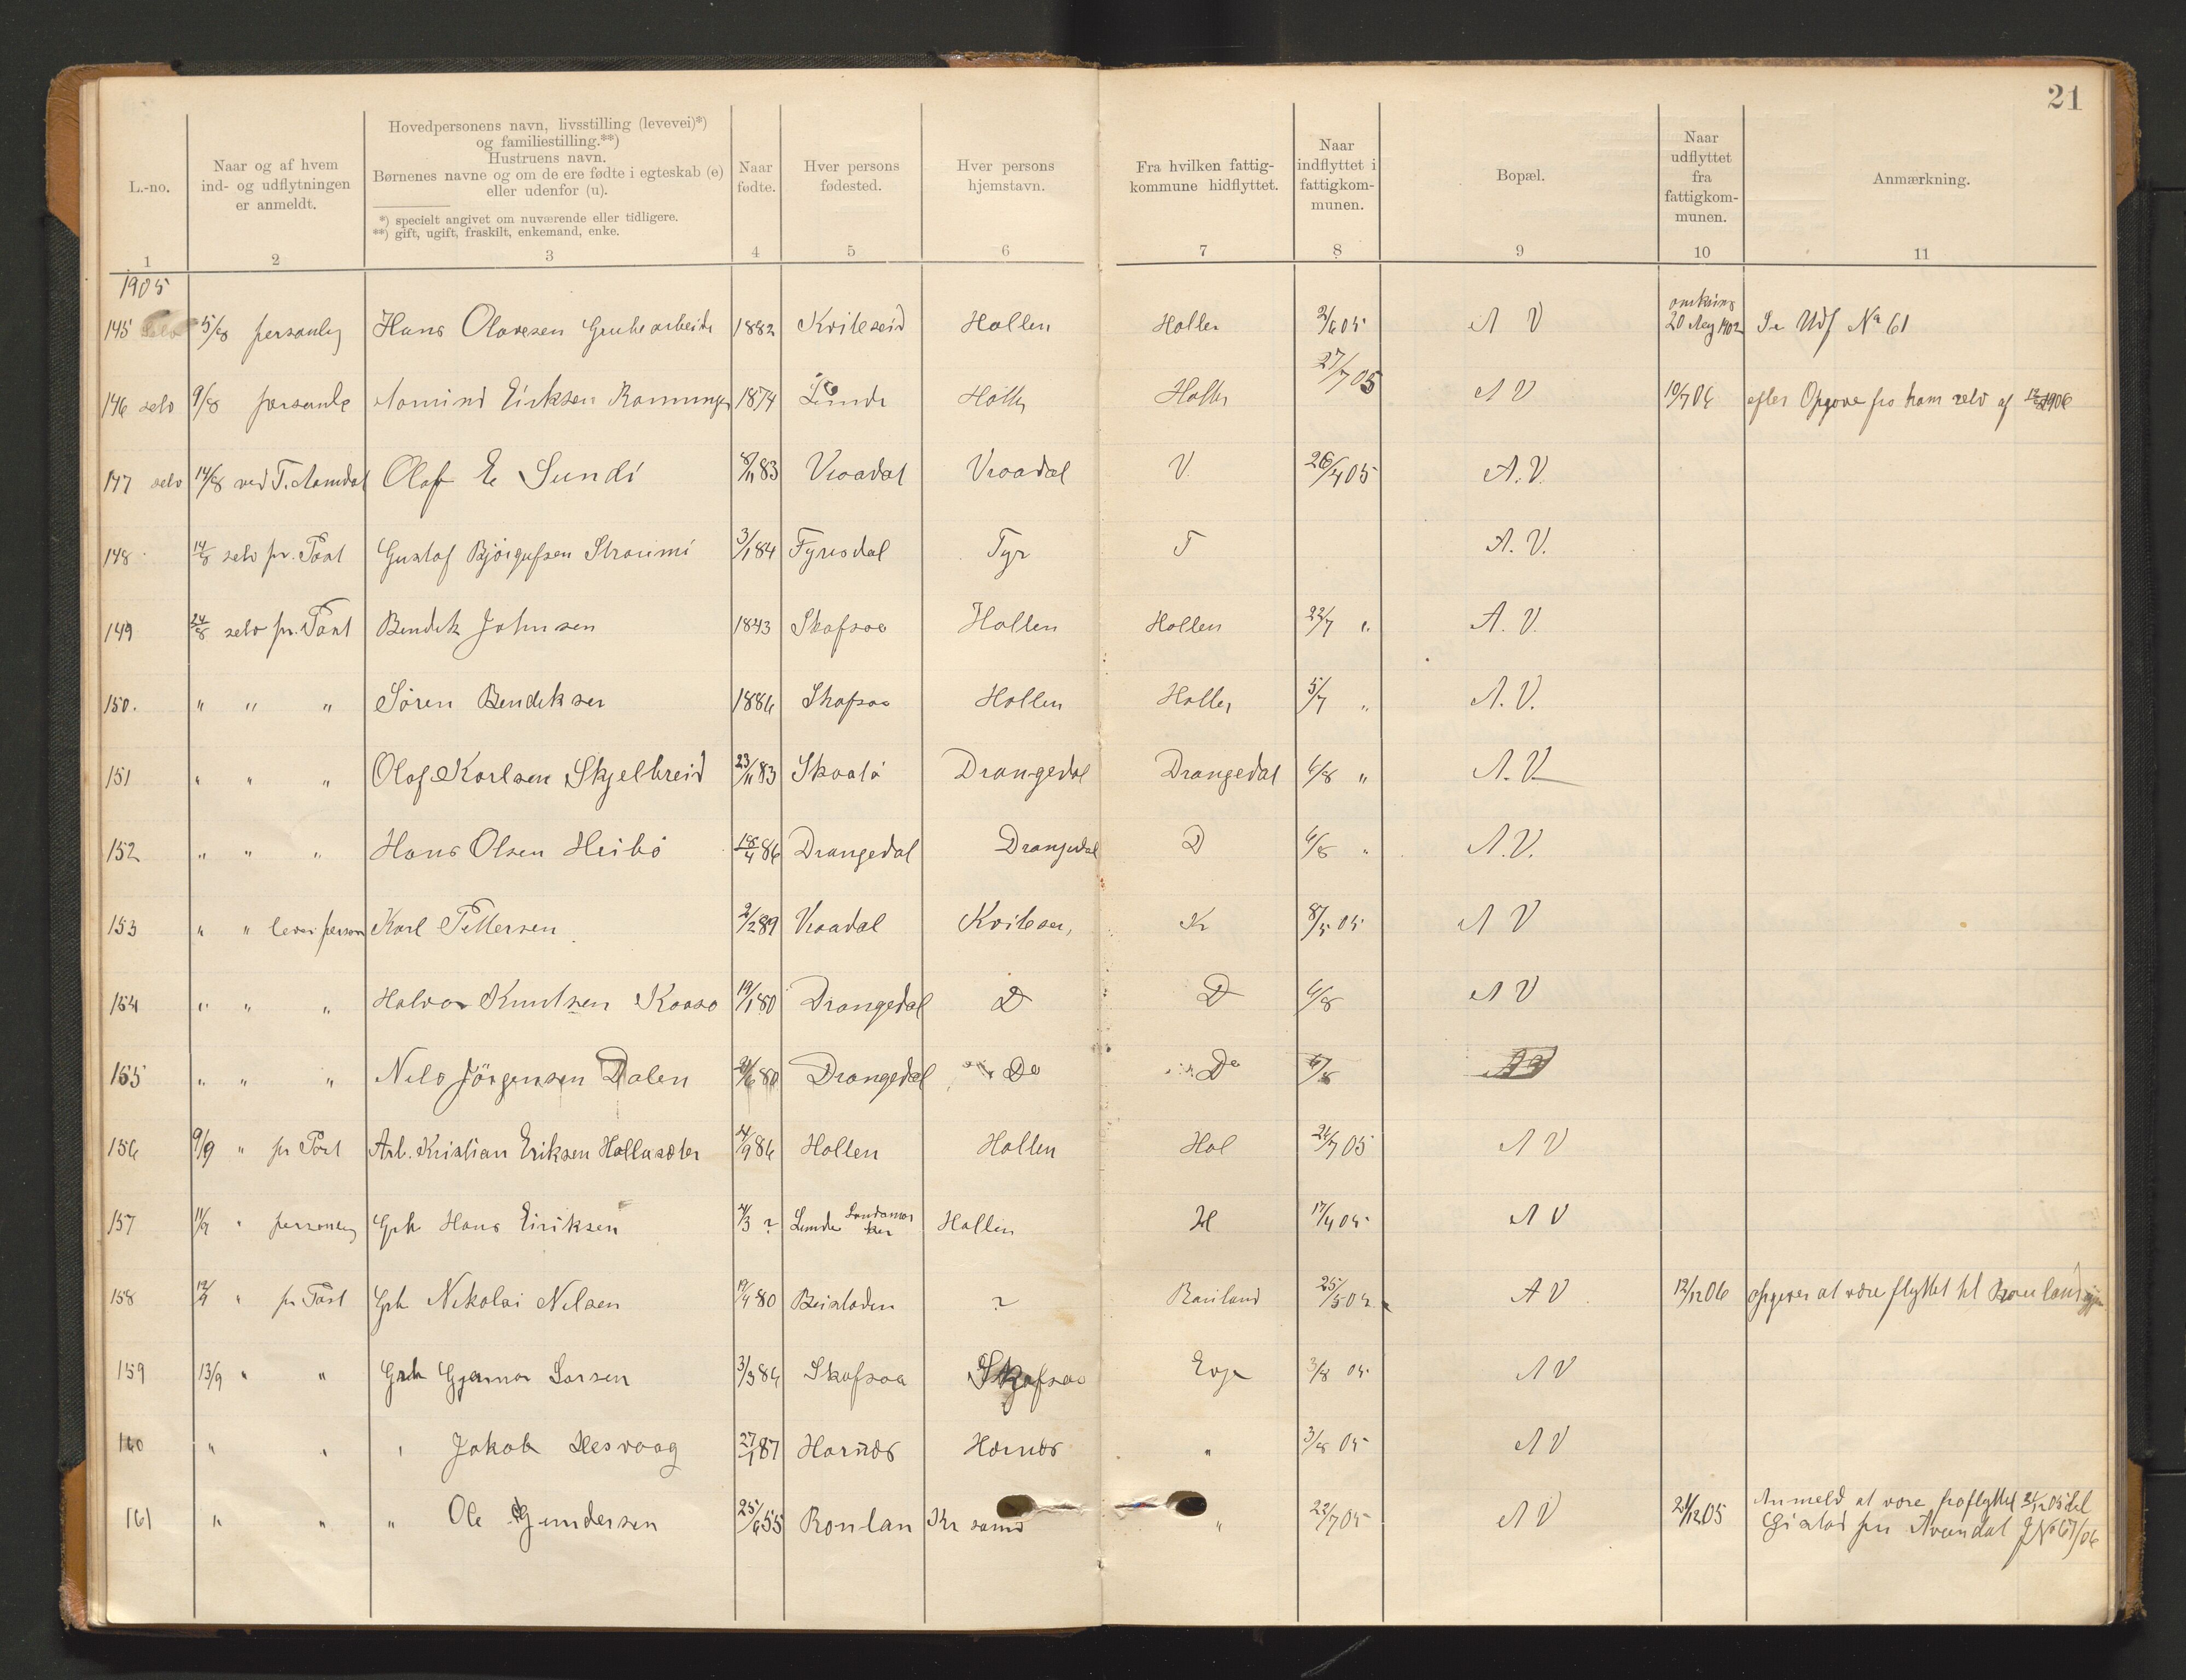 21
L.-no.
Naar og af hvem
ind- og udflytningen
er anmeldt.
Hovedpersonens navn, livsstilling (levevei)*)
og familiestilling.**)
Hustruens navn.
Børnenes navne og om de ere fødte i egteskab (e)
eller udenfor (u).
*) specielt angivet om nuværende eller tidligere.
**) gift, ugift, fraskilt, enkemand, enke.
Naar
fødte.
Hver persons
fødested.
Hver persons
hjemstavn.
Fra hvilken fattig-
kommune hidflyttet.
Naar
indflyttet i
fattigkom-
munen.
Bopæl.
Naar
udflyttet
fra
fattigkom-
munen.
Anmærkning.
1 2 3 4 5 6 7 8 9 10 11
1905
145 selv 5/8 personlig Hans Olavesen Grubearbeide 1882 Kviteseid Hollen Hollen 2/6 05 A V omkring 20 Aug 1902 Se Udf No 61
146 selv 9/8 personlig Aamund Eriksen 1874 Lunde Holl Holl 27/7 05 A V 10/7 06 efter Opgave fra ham selv af 1906
147 selv 14/8 ved T. Aamdal Olaf E Sundi 8/11 83 Vraadal Vraadal V 26/4 05 A. V.
148 14/8 selv pr. Post Gustaf Bjórgufsen Straumi 3/1 84 Fyrisdal Fyr F A. V.
149 24/8 selv pr. Post Bendik Johnsen 1843 Skafsaa Hollen Hollen 22/7 " A. V.
150. " " " Sören Bendiksen 1886 Skafsaa Hollen Hollen 5/7 " A. V.
151 " " " Olaf Karlsen Skjelbreid 23/11 83 Skaatö Drangedal Drangedal 6/8 " A. V.
152 " " " Hans Olsen Heibö 18/4 86 Drangedal Drangedal D 6/8 " A. V.
153 " " lever person Karl Pettersen 2/2 89 Vraadal Kvitesei, K 8/5 05 A V
154 " " " Halvor Knutsen Kaasa 19/1 80 Drangedal D D 6/8 A V
155 " " " Nils Jörgensen Dalen 80 Drangedal Do Do 6/8
156 9/9 " pr Post Arb. Kristian Eriksen Hollasæter 4/9 86 Hollen Hollen Hol 24/7 05 A V
157 11/9 " personlig Grb Hans Eiriksen 4/3 ? Lunde Hollen H 17/4 05 A V
158 12/9 " pr Post Grb Nikolai Nilsen 19/4 80 Beistaden ? Rauland 25/5 02 A V 12/12 06 opgiver at være flyttet til Rauland igjen
159 13/9 " " Grb Gjermo Larsen 3/3 86 Skafsaa Skafsaa Evje 3/8 05 A V
160 " " " Jakob Hesvaag 27/1 87 Hornæs Hornæs " 3/8 05 A V
161 " " " Ole Gundersen 25/6 55 Roulan Kr sand " 22/7 05 A V 21/12 05 Anmeld at være fraflyttet 21/12 05 til
Gistad pr Arendal J No 67/06